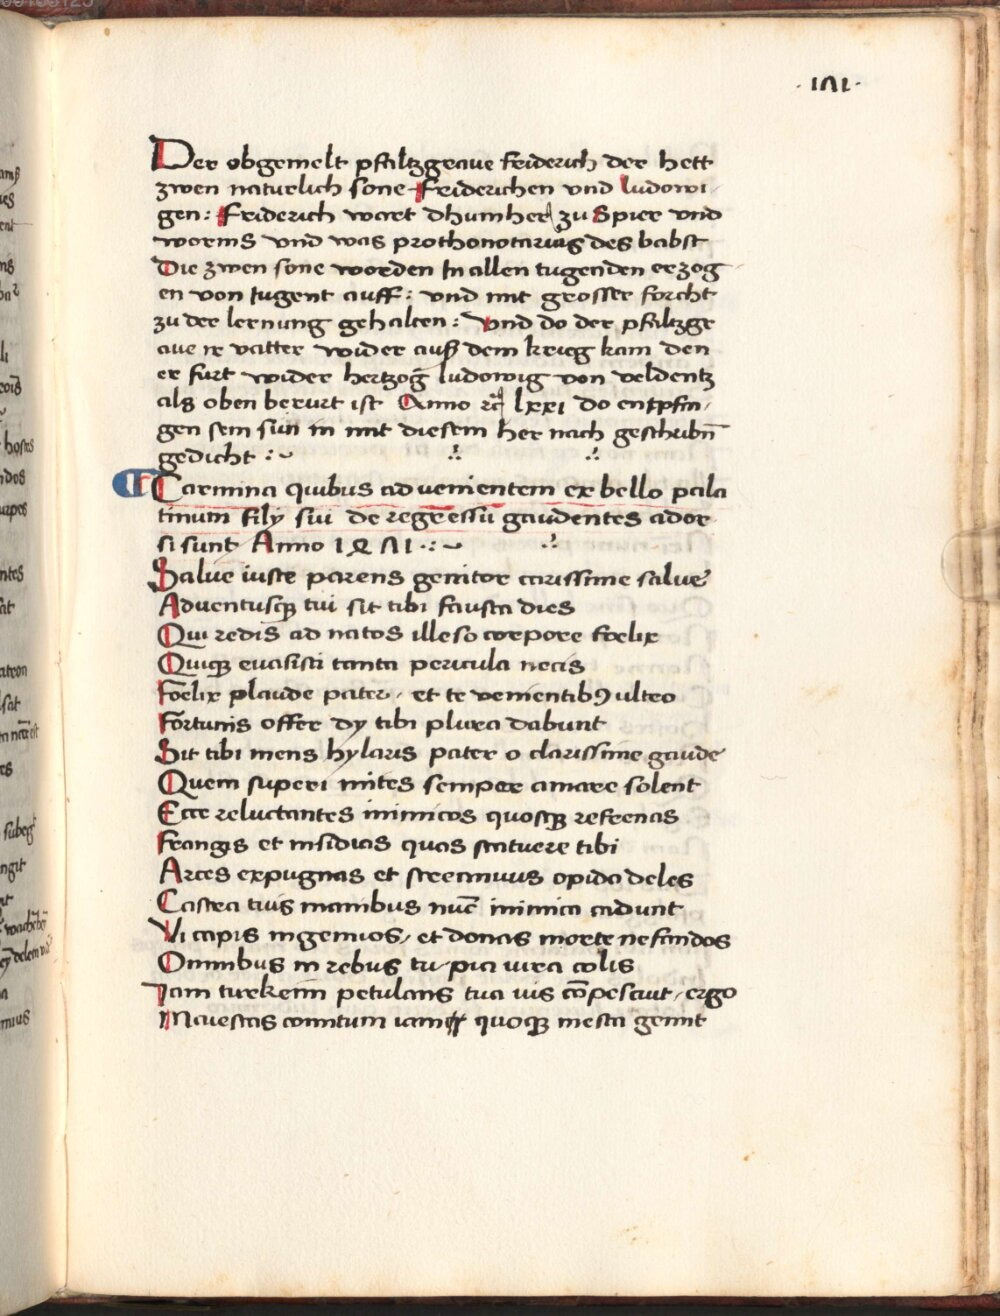 · 1Λ1 ·
Der obgemelt pfaltzgraue friderich der hett
zwen naturlich sone friderichen vnd ludowi
gen: friderich wart dhumher zu Spier vnd
worms vnd was prothonotarius des babst
Die zwen sone worden In allen tugenden erzog
en von Iugent auff: vnd mit grosser forcht
zu der lernung gehalten: Vnd do der pfaltzgr
aue ir vatter wider auß dem krieg kam den
er furt wider hertzog ludowig von veldentz
als oben berurt ist Anno lxxi do entpfin
gen sein sün in mit diesem her nach geschribn̄
gedicht :~
Carmina quibus aduenientem ex bello pala
tinum filÿ sui de regressu gaudentes ador
si sunt Anno 1ꝝΛ1 .:~
Salue iuste parens genitor carissime salue
Aduentusqꝫ tui sit tibi fausta dies
Qui redis ad natos illeso corpore foelix
Quiqꝫ euasisti tanta pericula necis
Foelix plaude pater, et te venientibꝰ ultro
Fortunis offer dÿ tibi plura dabunt
Sit tibi mens hylaris pater o clarissime gaude
Quem superi mites semper amare solent
Ecce reluctantes inimicos quosqꝫ refrenas
Frangis et insidias quas statuere tibi
Arces expugnas et strennuus opida deles
Castra tuis manibus nūc inimica cadunt
Vi capis ingenios, et donas morte nefandos
Omnibus in rebus tu pia iura colis
Iam turkeim petulans tua uis cōpescuit, ergo
Maiestas comitum quoqꝫ mesta gemit